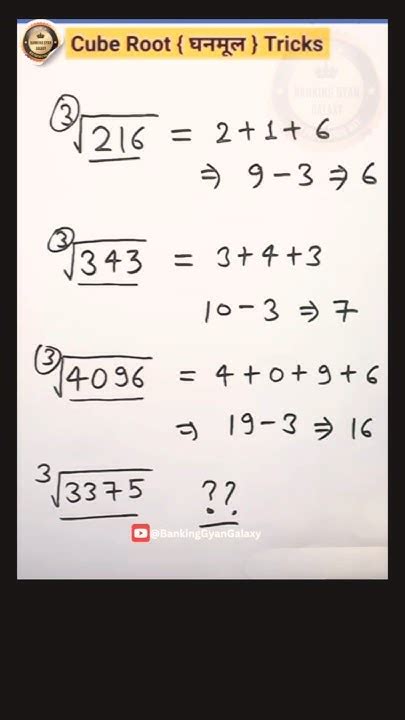 BANKING GYAN
GALAXY
Cube Root { घनमूल } Tricks
BANKING GYAN
GALAXY
∛216 = 2+1+6
⇒ 9-3 ⇒ 6
∛343 = 3+4+3
10-3 ⇒ 7
∛4096 = 4+0+9+6
⇒ 19-3 ⇒ 16
∛3375 ??
@BankingGyanGalaxy